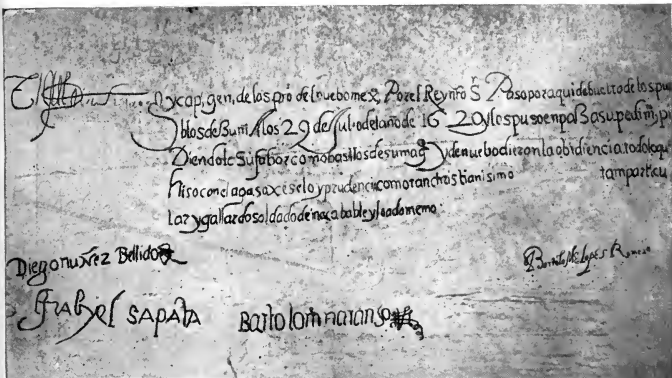 El
y cap, gen, de las pro del nuebo mex, Por el Rey nro S Paso por aqui de buelto de los pue
blos de Zuni A los 29 de Julio del año de 1620 y los puso en paz a su pedim, pi
Diendole su fabor como basallos de su mag y de nuebo dieron la obidiencia todo lo que
hiso con el agasaxe selo y prudencia como tan christianisimo tam particu
lar y gallardo soldado de y loado memo
Diego nuñez Bellido
Bartolome Romero
SAPATA Bartolom naranso